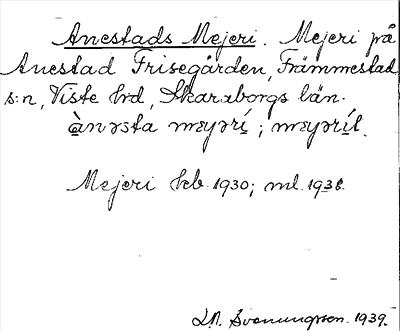 Anestads Mejeri. Mejeri på
Anestad Frisegården, Främmestad
s:n, Viste hrd, Skaraborgs län.
ànəsta mɛyərí; mɛyərít.
Mejeri keb. 1930; ml. 1938.
L.N. Svanungsson. 1939.